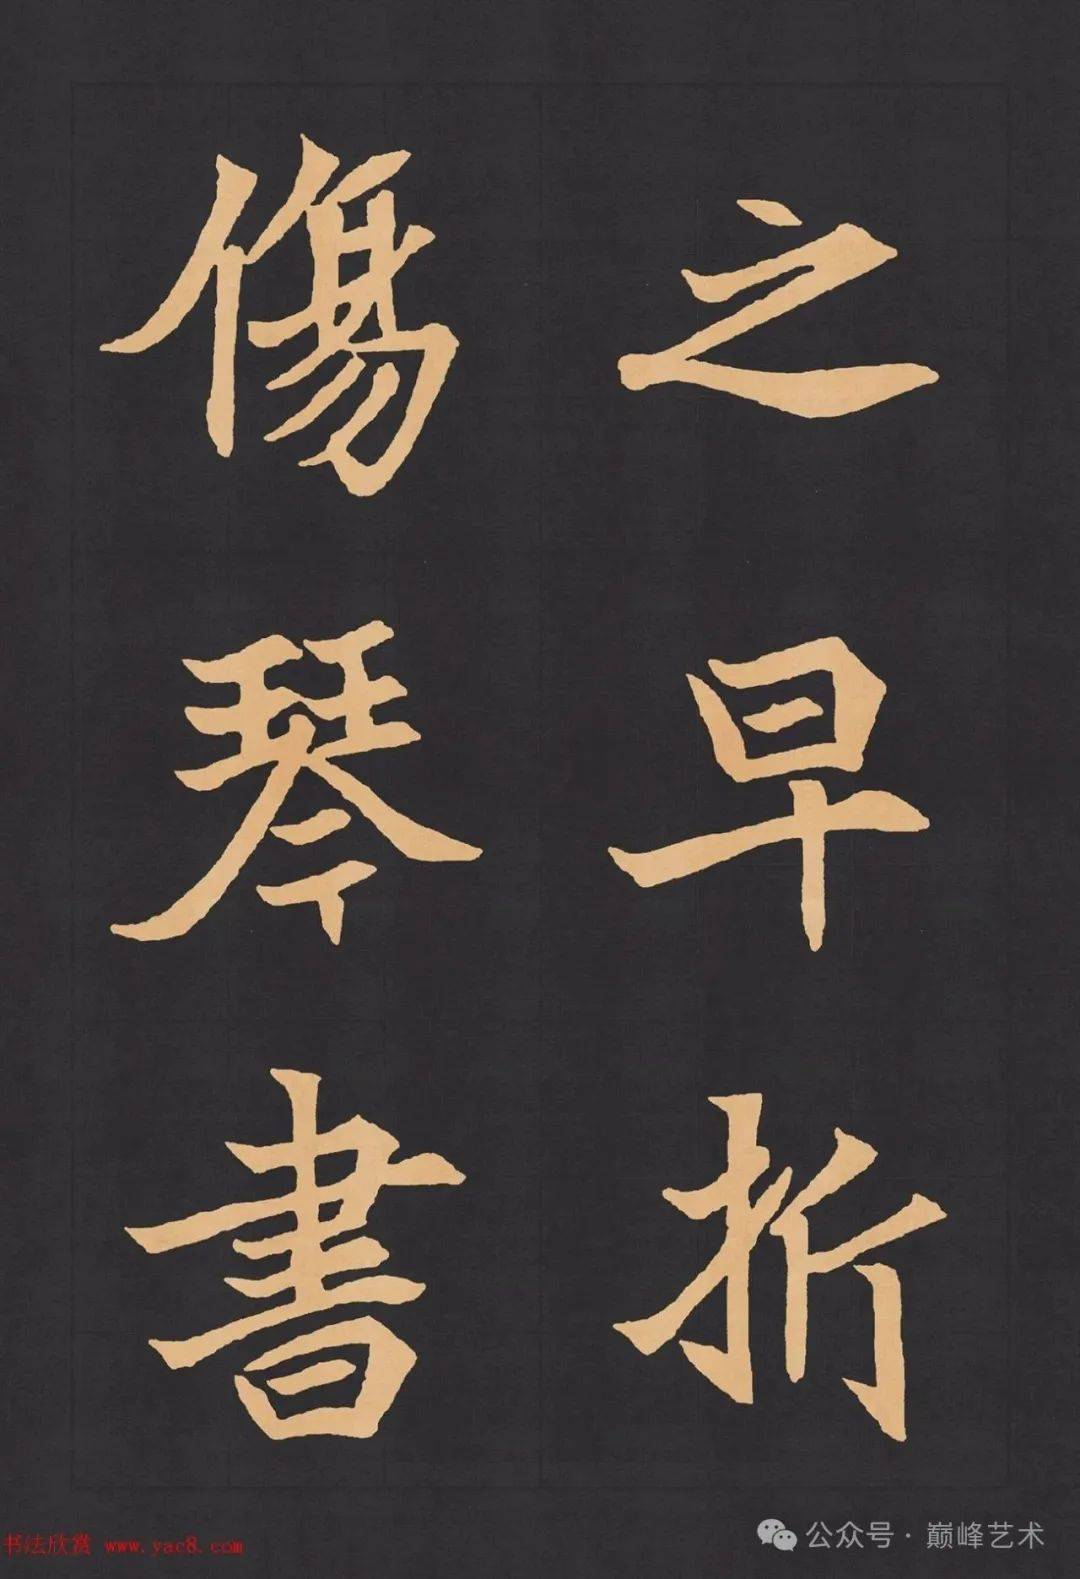 之早折
傷琴書
书法欣赏 www.yac8.com
公众号 · 巅峰艺术